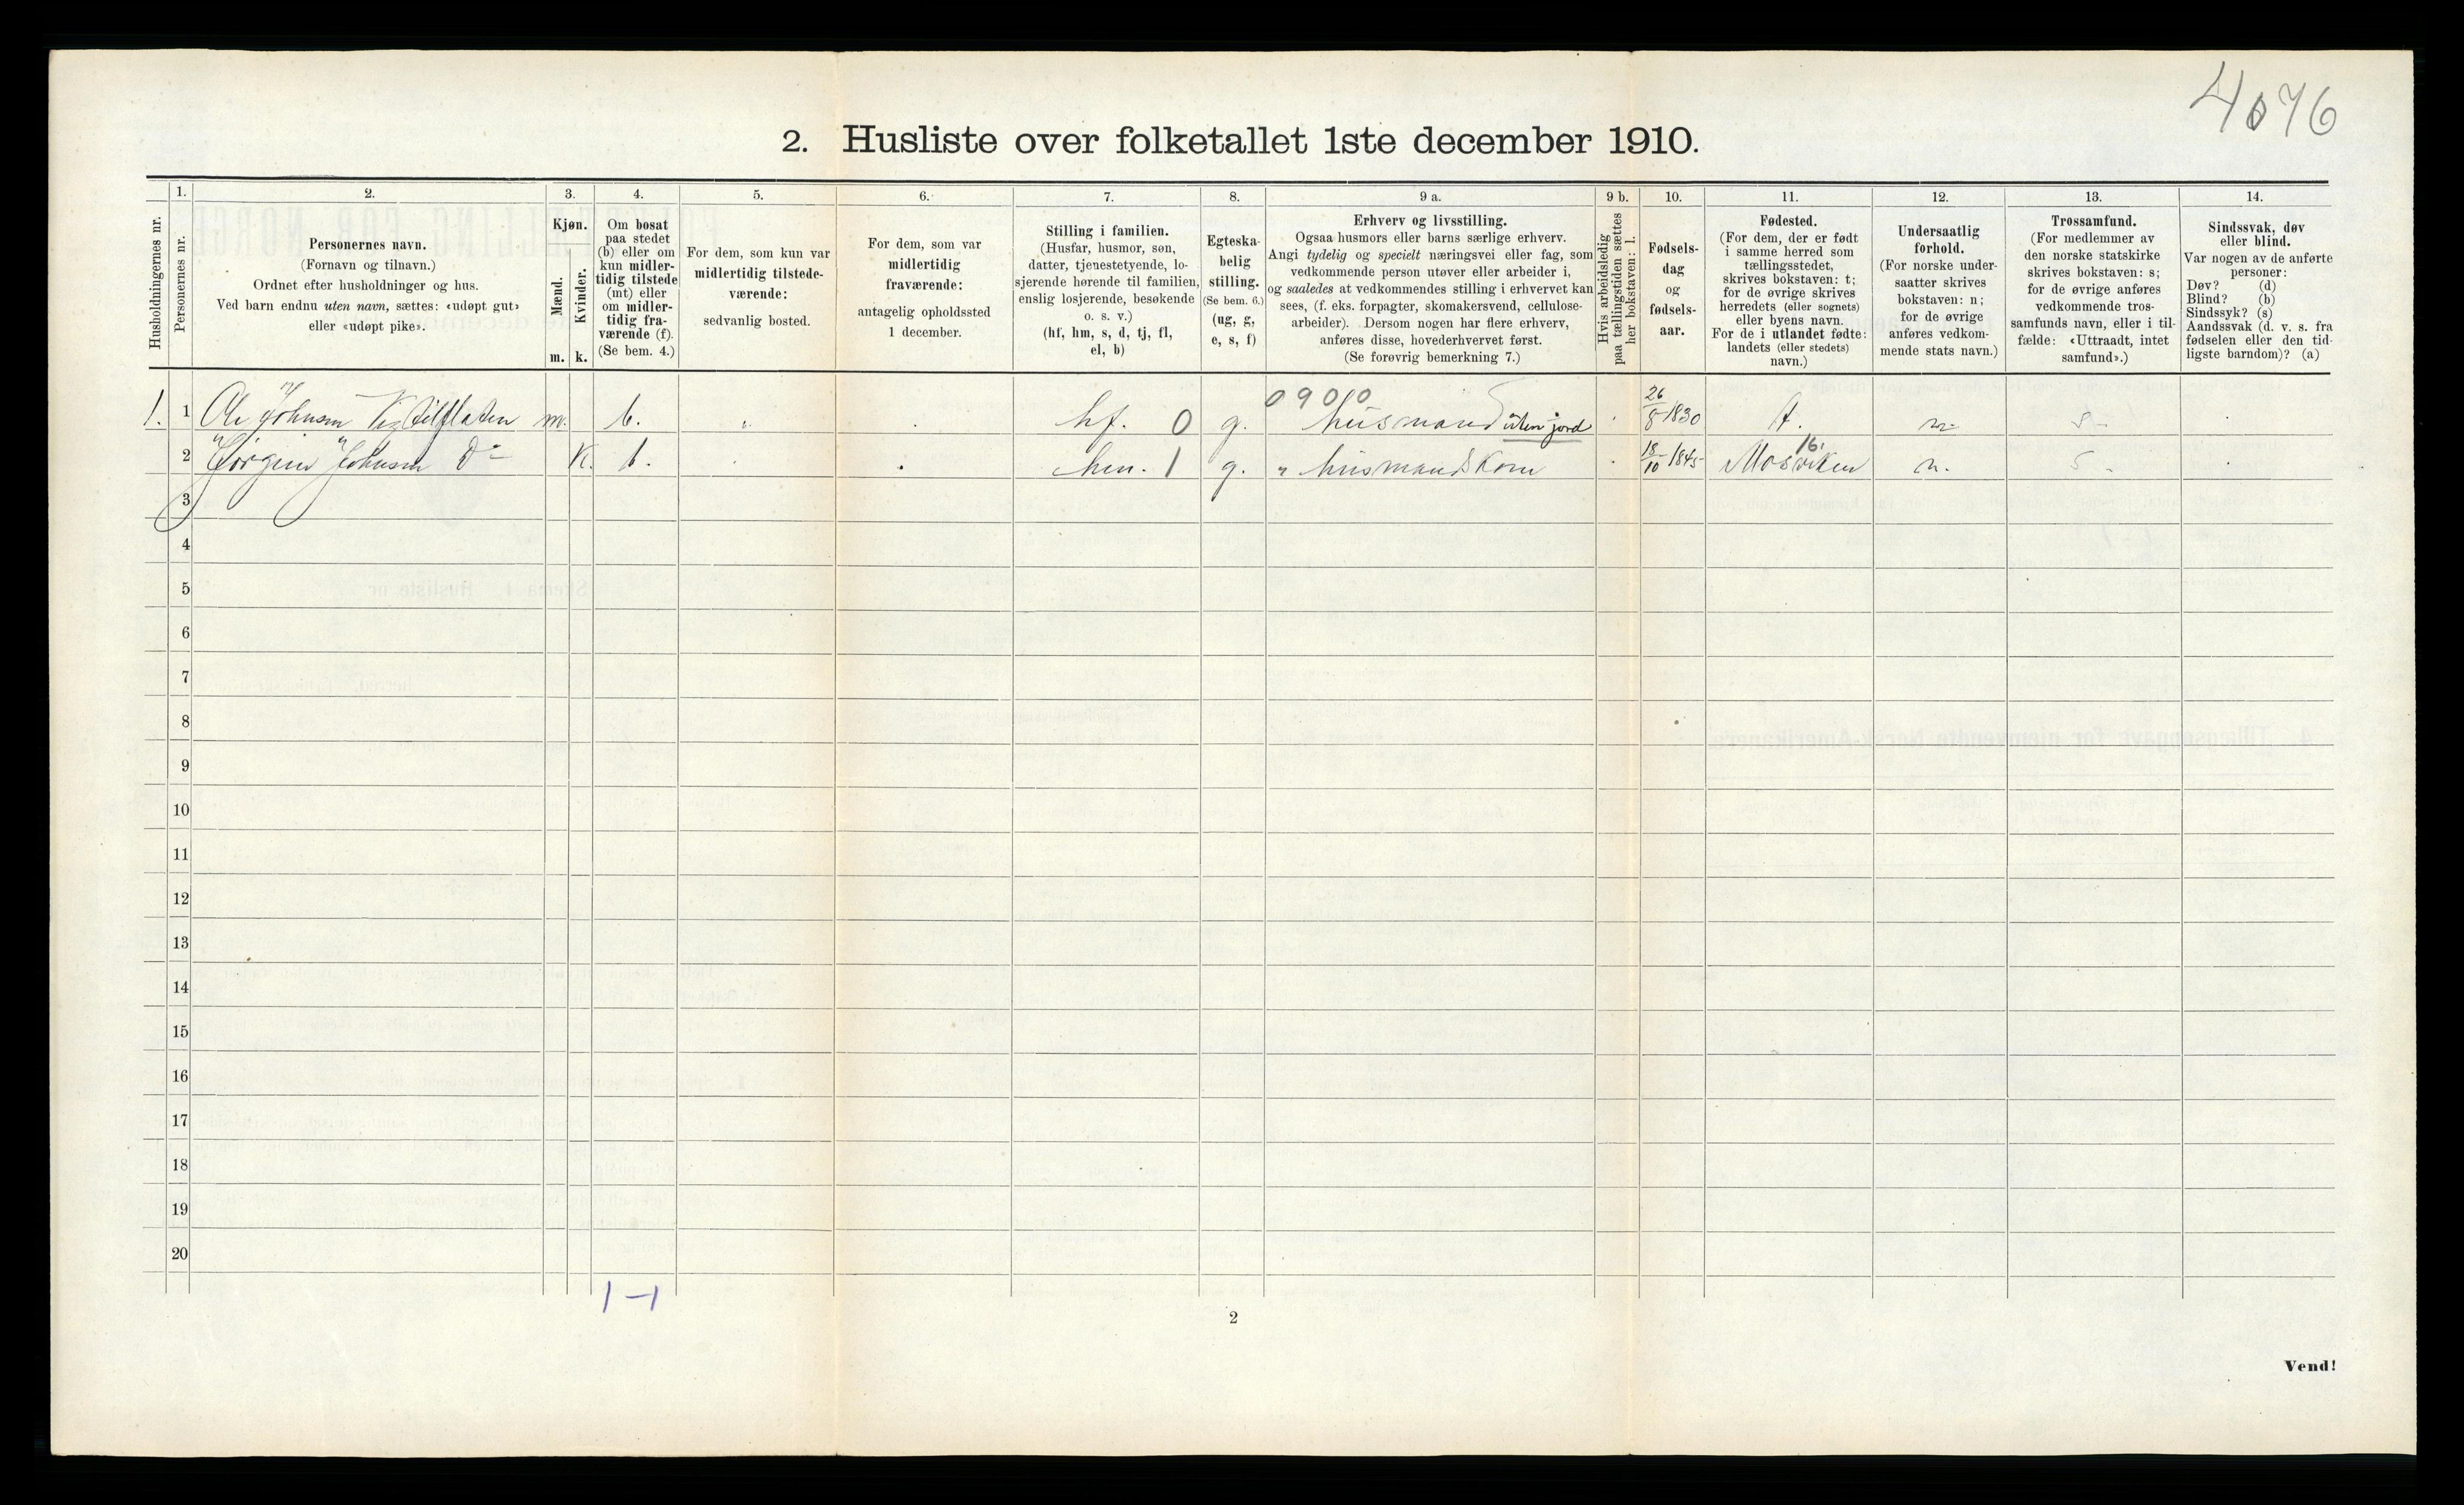 4076
2. Husliste over folketallet 1ste december 1910.
Husholdningernes nr.
1.
Personernes nr.
2.
Personernes navn.
(Fornavn og tilnavn.)
Ordnet efter husholdninger og hus.
Ved barn endnu uten navn, sættes: «udøpt gut»
eller «udøpt pike».
3.
Kjøn.
Mænd.
Kvinder.
m. k.
4.
Om bosat
paa stedet
(b) eller om
kun midler-
tidig tilstede
(mt) eller
om midler-
tidig fra-
værende (f).
(Se bem. 4.)
5.
For dem, som kun var
midlertidig tilstede-
værende:
sedvanlig bosted.
6.
For dem, som var
midlertidig
fraværende:
antagelig opholdssted
1 december.
7.
Stilling i familien.
(Husfar, husmor, søn,
datter, tjenestetyende, lo-
sjerende hørende til familien,
enslig losjerende, besøkende
o. s. v.)
(hf, hm, s, d, tj, fl,
el, b)
8.
Egteska-
belig
stilling.
(Se bem. 6.)
(ug, g,
e, s, f)
9 a.
Erhverv og livsstilling.
Ogsaa husmors eller barns særlige erhverv.
Angi tydelig og specielt næringsvei eller fag, som
vedkommende person utøver eller arbeider i,
og saaledes at vedkommendes stilling i erhvervet kan
sees, (f. eks. forpagter, skomakersvend, cellulose-
arbeider). Dersom nogen har flere erhverv,
anføres disse, hovederhvervet først.
(Se forøvrig bemerkning 7.)
9 b.
Hvis arbeidsledig
paa tællingstiden sættes
her bokstaven: l.
10.
Fødsels-
dag
og
fødsels-
aar.
11.
Fødested.
(For dem, der er født
i samme herred som
tællingsstedet,
skrives bokstaven: t;
for de øvrige skrives
herredets (eller sognets)
eller byens navn.
For de i utlandet fødte:
landets (eller stedets)
navn.)
12.
Undersaatlig
forhold.
(For norske under-
saatter skrives
bokstaven: n;
for de øvrige
anføres vedkom-
mende stats navn.)
13.
Trossamfund.
(For medlemmer av
den norske statskirke
skrives bokstaven: s;
for de øvrige anføres
vedkommende tros-
samfunds navn, eller i til-
fælde: «Uttraadt, intet
samfund».)
14.
Sindssvak, døv
eller blind.
Var nogen av de anførte
personer:
Døv? (d)
Blind? (b)
Sindssyk? (s)
Aandssvak (d. v. s. fra
fødselen eller den tid-
ligste barndom)? (a)
09010
1. 1 Ole Johnsen m. b. hf. 0 g. husmand uten jord 26/8-1830 t. n. s.
16.
2 Jørgine Johnsen Do k. b. hm. 1 g. " husmandskone 18/10-1845 Mosviken n. s.
3
4
5
6
7
8
9
10
11
12
13
14
15
16
17
18
19
20
1-1
2
Vend!